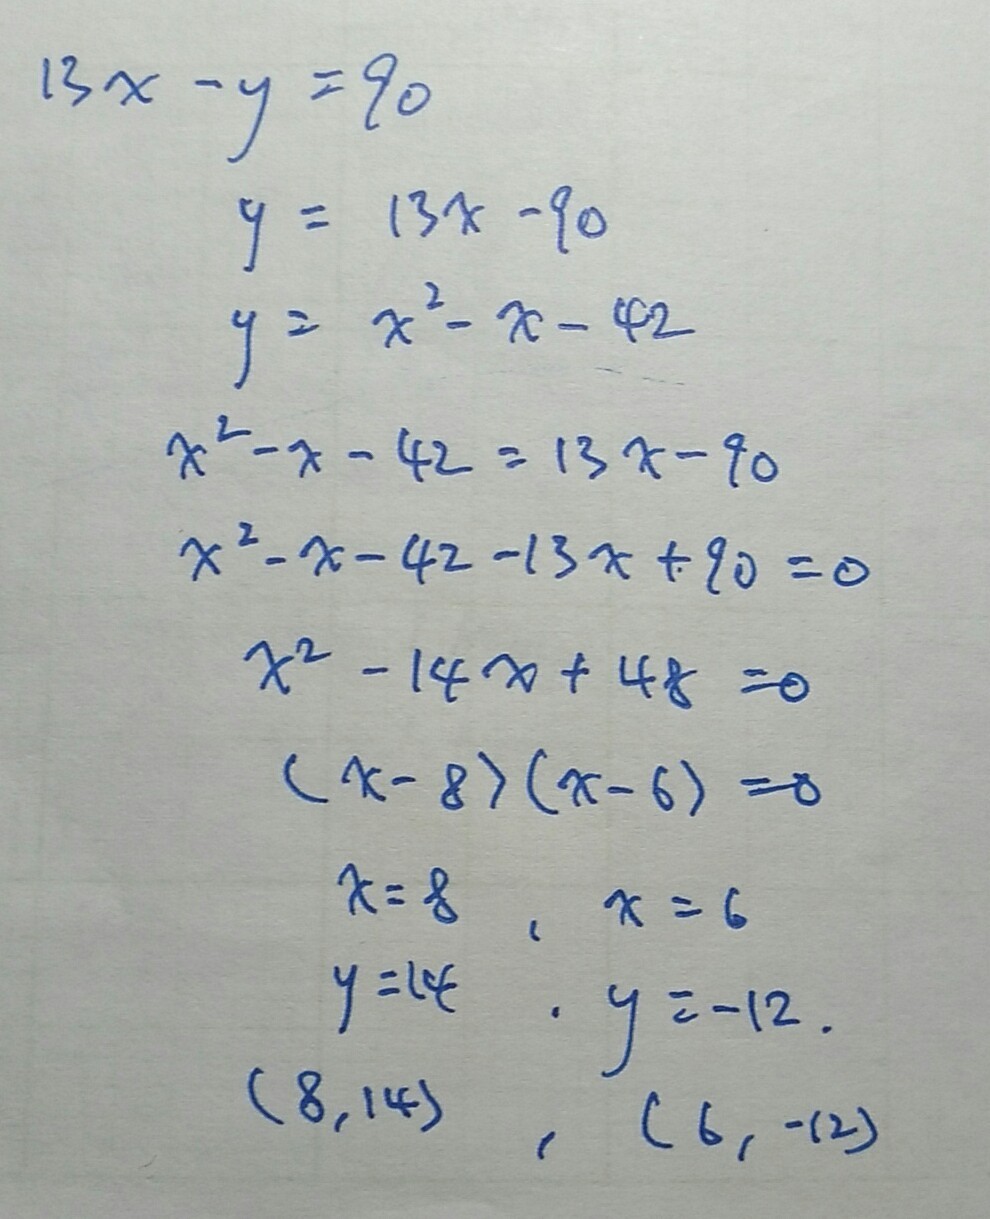 13x - y = 90
y = 13x - 90
y = x² - x - 42
x² - x - 42 = 13x - 90
x² - x - 42 - 13x + 90 = 0
x² - 14x + 48 = 0
(x - 8)(x - 6) = 0
x = 8 , x = 6
y = 14 . y = -12.
(8, 14) , (6, -12)